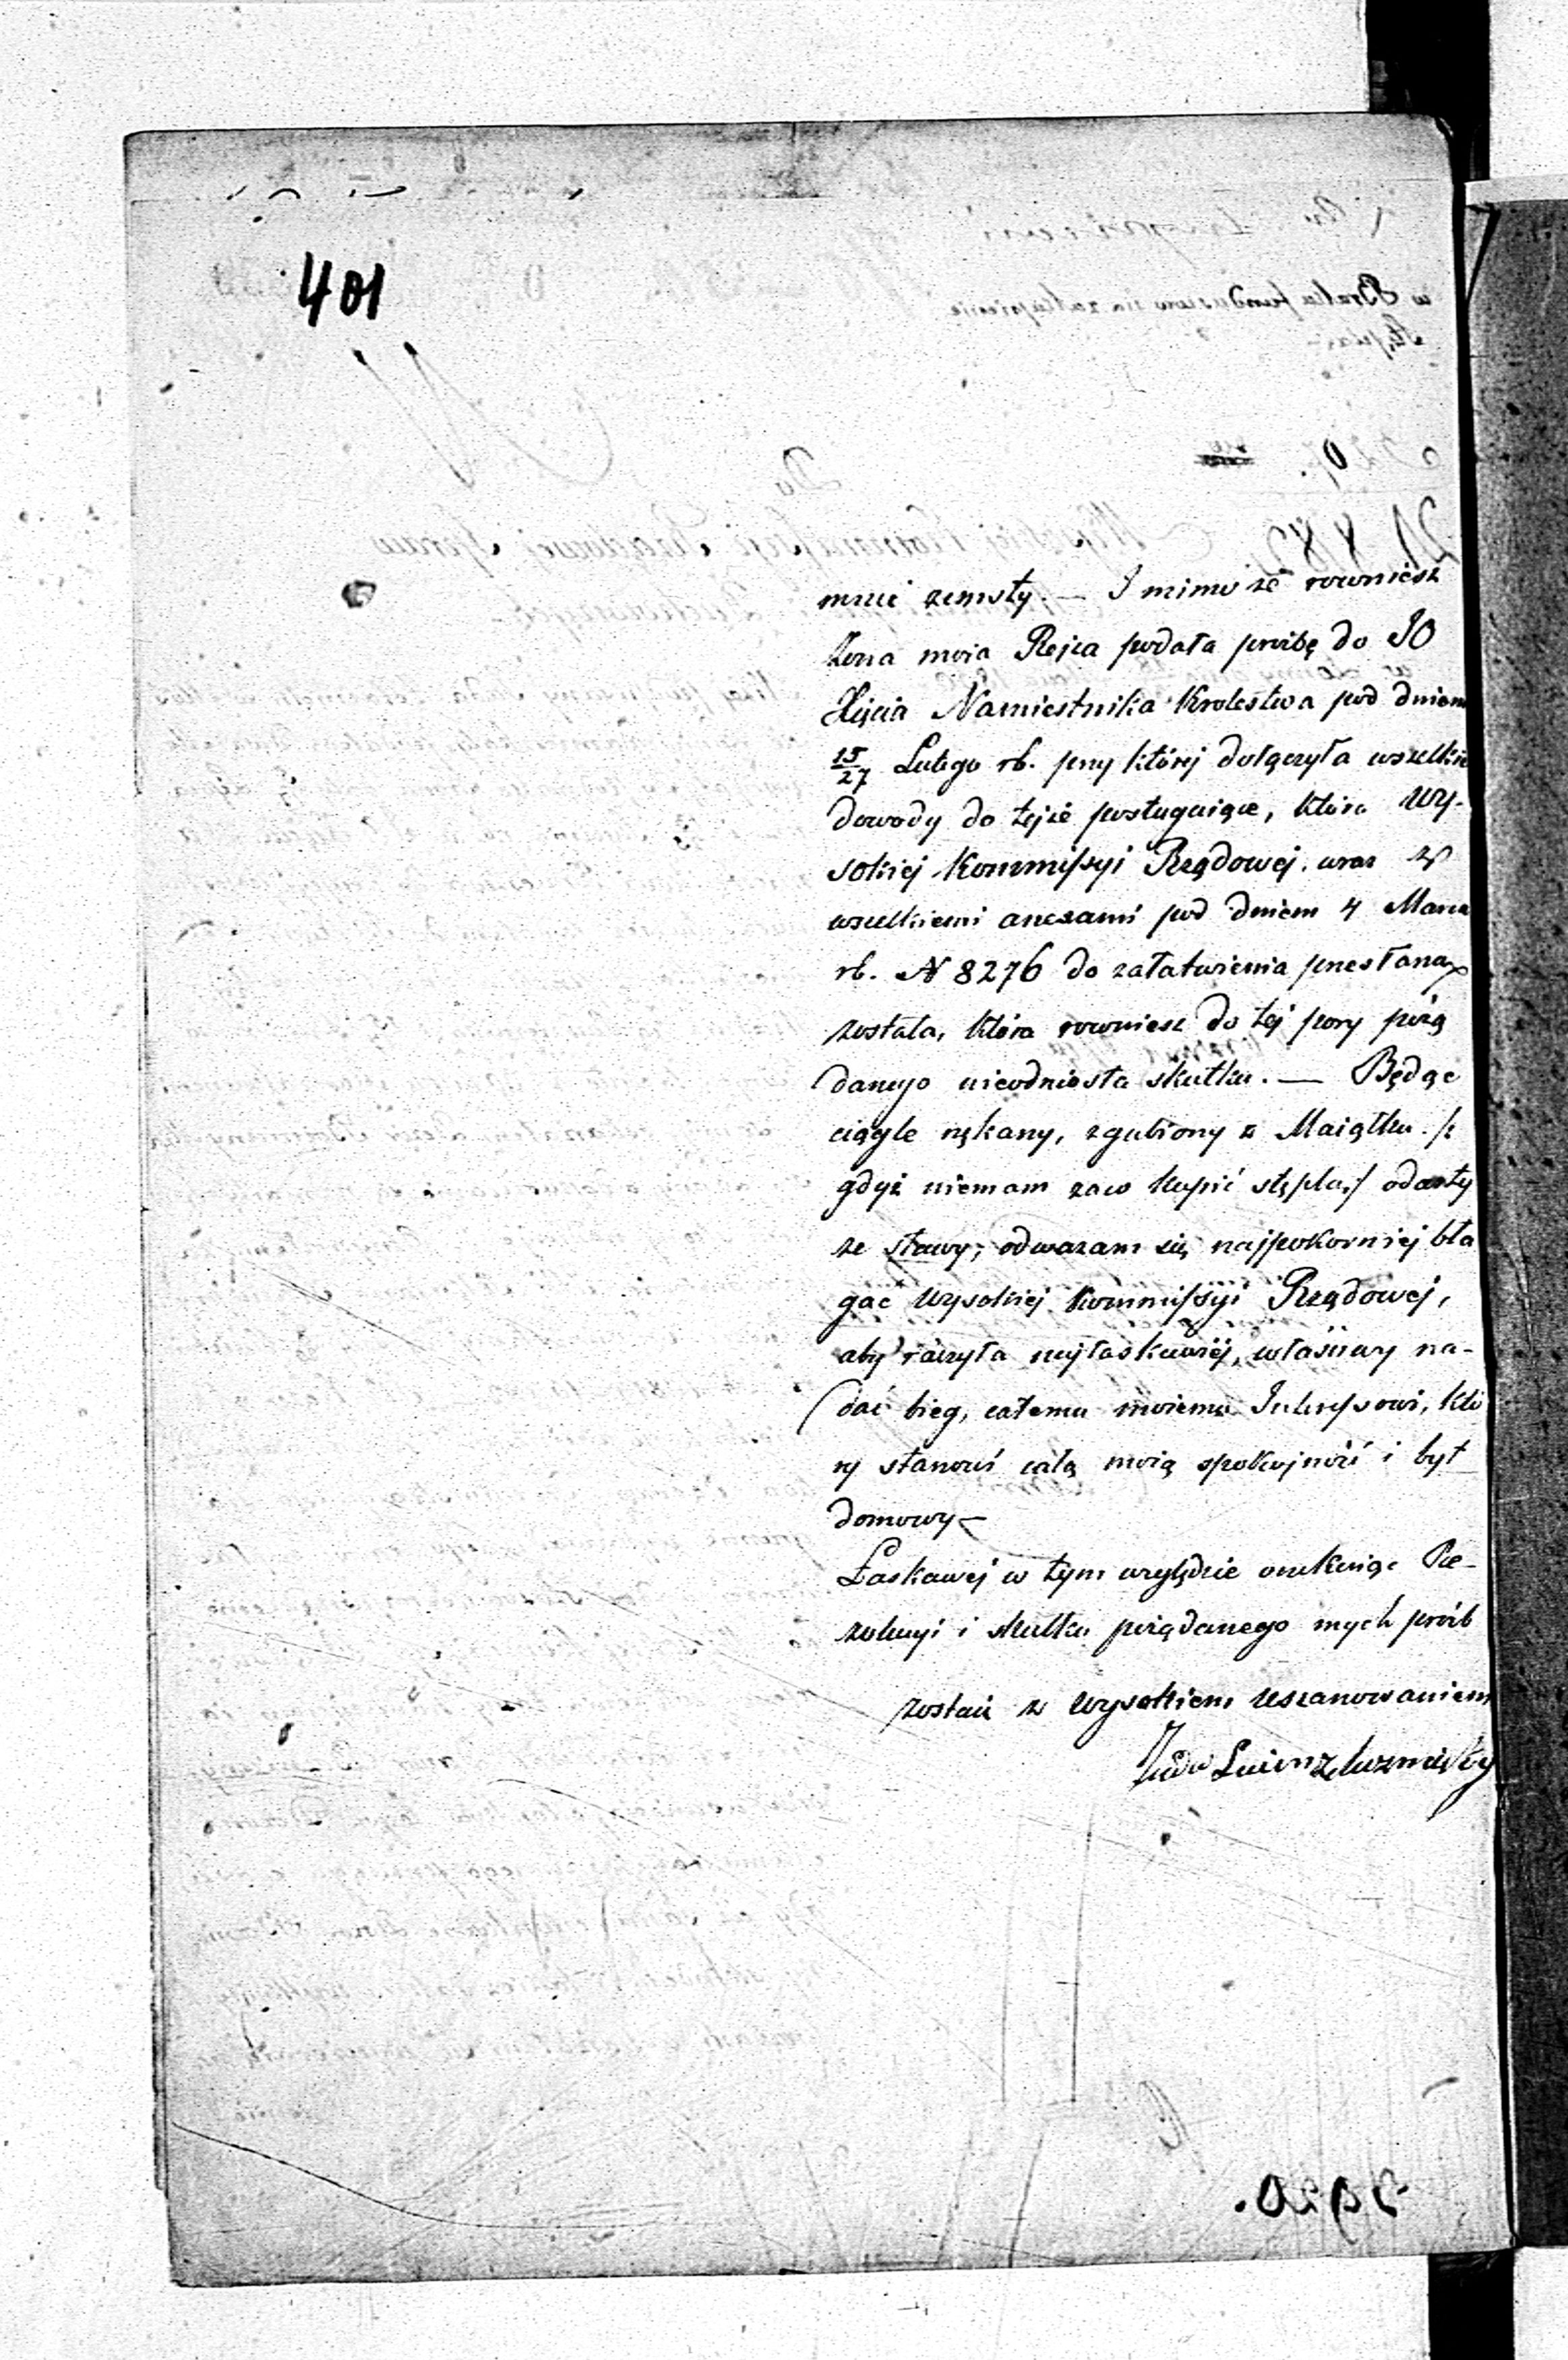 401
mnie zemsty. — I mimo że rowniesz
żona moia Rejza podała proźbę do JO
Xięcia Namiestnika Krolestwa pod dniem
15/27 Lutego rb. przy której dołączyła wszelkie
dowody do tejże posługuiące, która Wy-
sokiej Kommissyi Rządowej wraz z
wszelkiemi anexami pod dniem 4 Marca
rb. N 8276 do załatwienia przesłaną
została, która rowniesz do tej pory pożą
danego nieodniosła skutku. — Będąc
ciągle nękany, zgubiony z Maiątku /:
gdyż niemam zaco kupić stępla :/ odarty
ze sławy, odwazam się najpokorniej bła
gać Wysokiej Kommissyi Rządowej,
aby raczyła najłaskawiej, właściwy na-
dać bieg, całemu moiemu Interessowi, któ
ry stanowi całą moią spokojność i byt
domowy —
Łaskawej w tym względzie oczekuiąc Re-
zolucyi i skutku pożądanego mych próśb
zostaię z wysokiem uszanowaniem